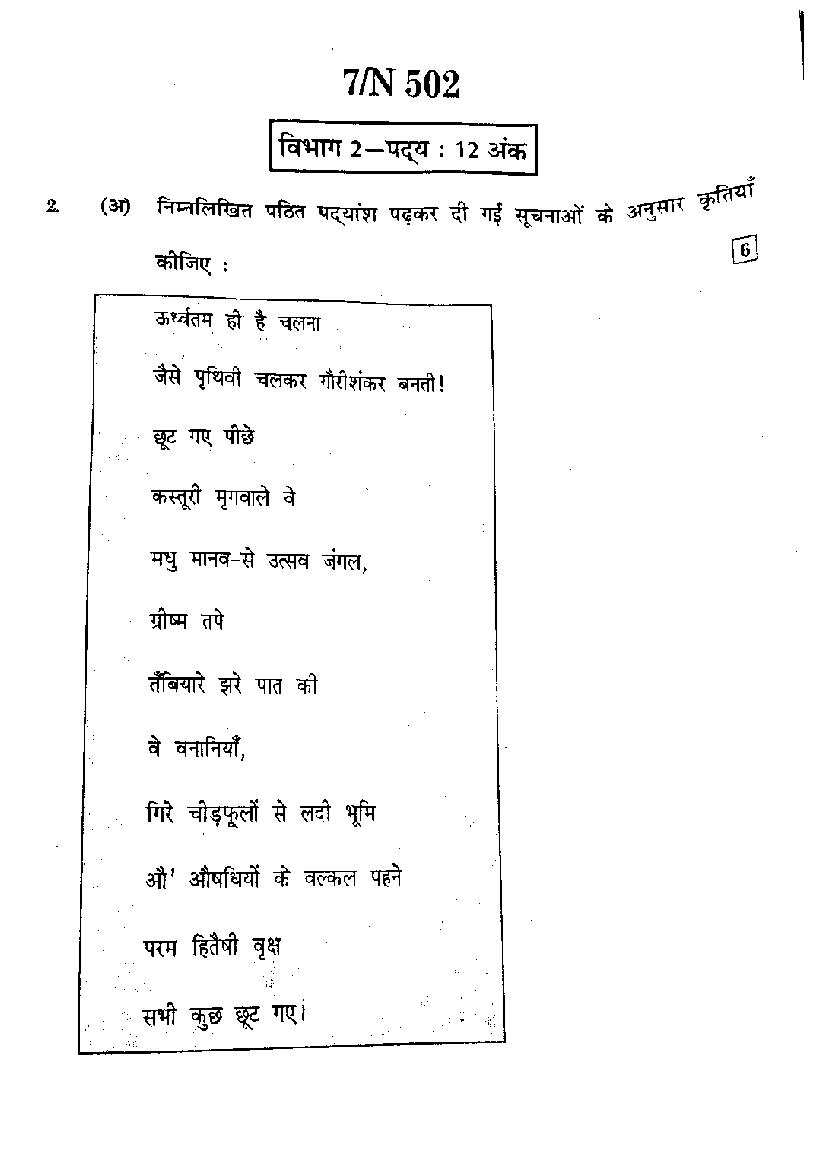 7/N 502
विभाग 2—पद्य : 12 अंक
2. (अ) निम्नलिखित पठित पद्यांश पढ़कर दी गई सूचनाओं के अनुसार कृतियाँ
कीजिए : 6
ऊर्ध्वतम ही है चलना
जैसे पृथिवी चलकर गौरीशंकर बनती!
छूट गए पीछे
कस्तूरी मृगवाले वे
मधु मानव-से उत्सव जंगल,
ग्रीष्म तपे
तँबियारे झरे पात की
वे वनानियाँ,
गिरे चीड़फूलों से लदी भूमि
औ' औषधियों के वल्कल पहने
परम हितैषी वृक्ष
सभी कुछ छूट गए।